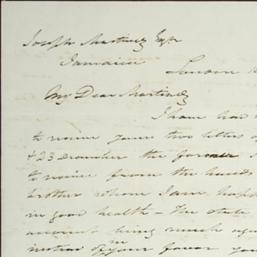 Joseph Martinez Esqr
Jamaica
London
My Dear Martinez
I have had
to receive yours two letters of
& 23 December the former
to receive from the hands
brother whom I am happy
in good health – The state
account being much
instead of your favor you